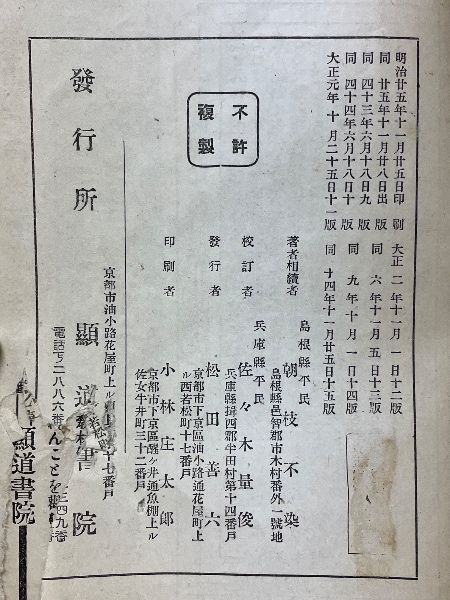 明治廿五年十一月廿五日印刷
同 廿五年十一月廿八日出版
同 四十三年六月十八日九版
同 四十四年六月十八日十版
大正元年十月二十五日十一版
大正二年十一月一日十二版
同 六年十一月五日十三版
同 九年十月一日十四版
同 十四年十一月廿五日十五版
不許
複製
島根縣平民
著者相續者 朝枝不染
島根縣邑智郡市木村番外一號地
兵庫縣平民
校訂者 佐々木量俊
兵庫縣揖西郡半田村第十四番戶
發行者 松田善六
京都市下京區油小路通花屋町上
ル西若松町十七番戶
印刷者 小林庄太郎
京都市下京區醒ヶ井通魚棚上ル
佐女牛井町三十二番戶
京都市油小路花屋町上ル
十七番戶
發行所 顯道書院
電話下二八八六番
三四九番
んことを
顯道書院